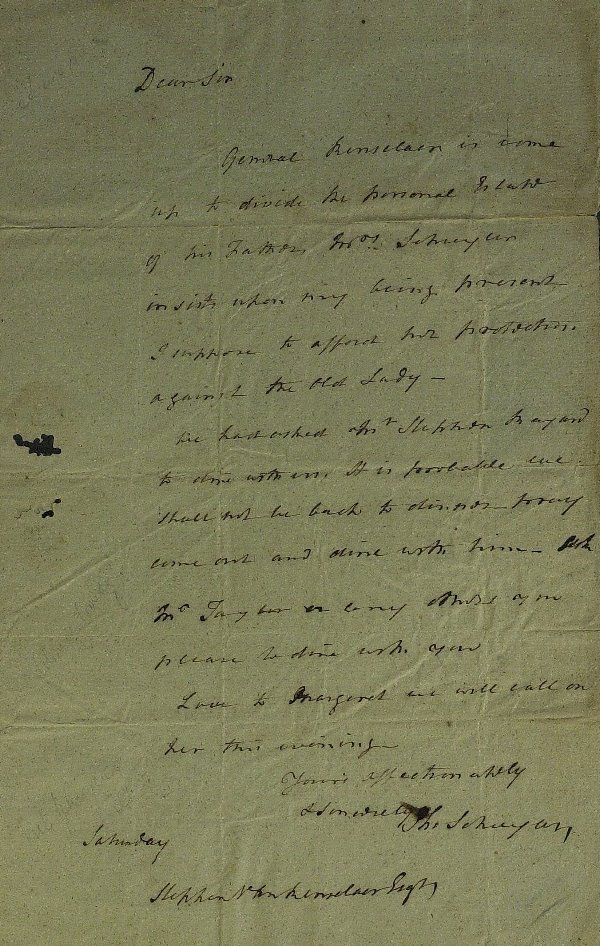 Dear Sir
General Renselaer is come
up to divide the personal Estate
of his Father, Mrs. Schuyler
insists upon my being present
I suppose to afford her protection
against the Old Lady –
We had asked Mr Stephen Bayard
to dine with us. It is probable we
shall not be back to dinner pray
come out and dine with him – Ask
Mr Taylor or any others you
please to dine with you
Love to Margaret we will call on
her this evening
Yours affectionately
& Sincerely
Ph: Schuyler
Saturday
Stephen V Rensselaer Esqr